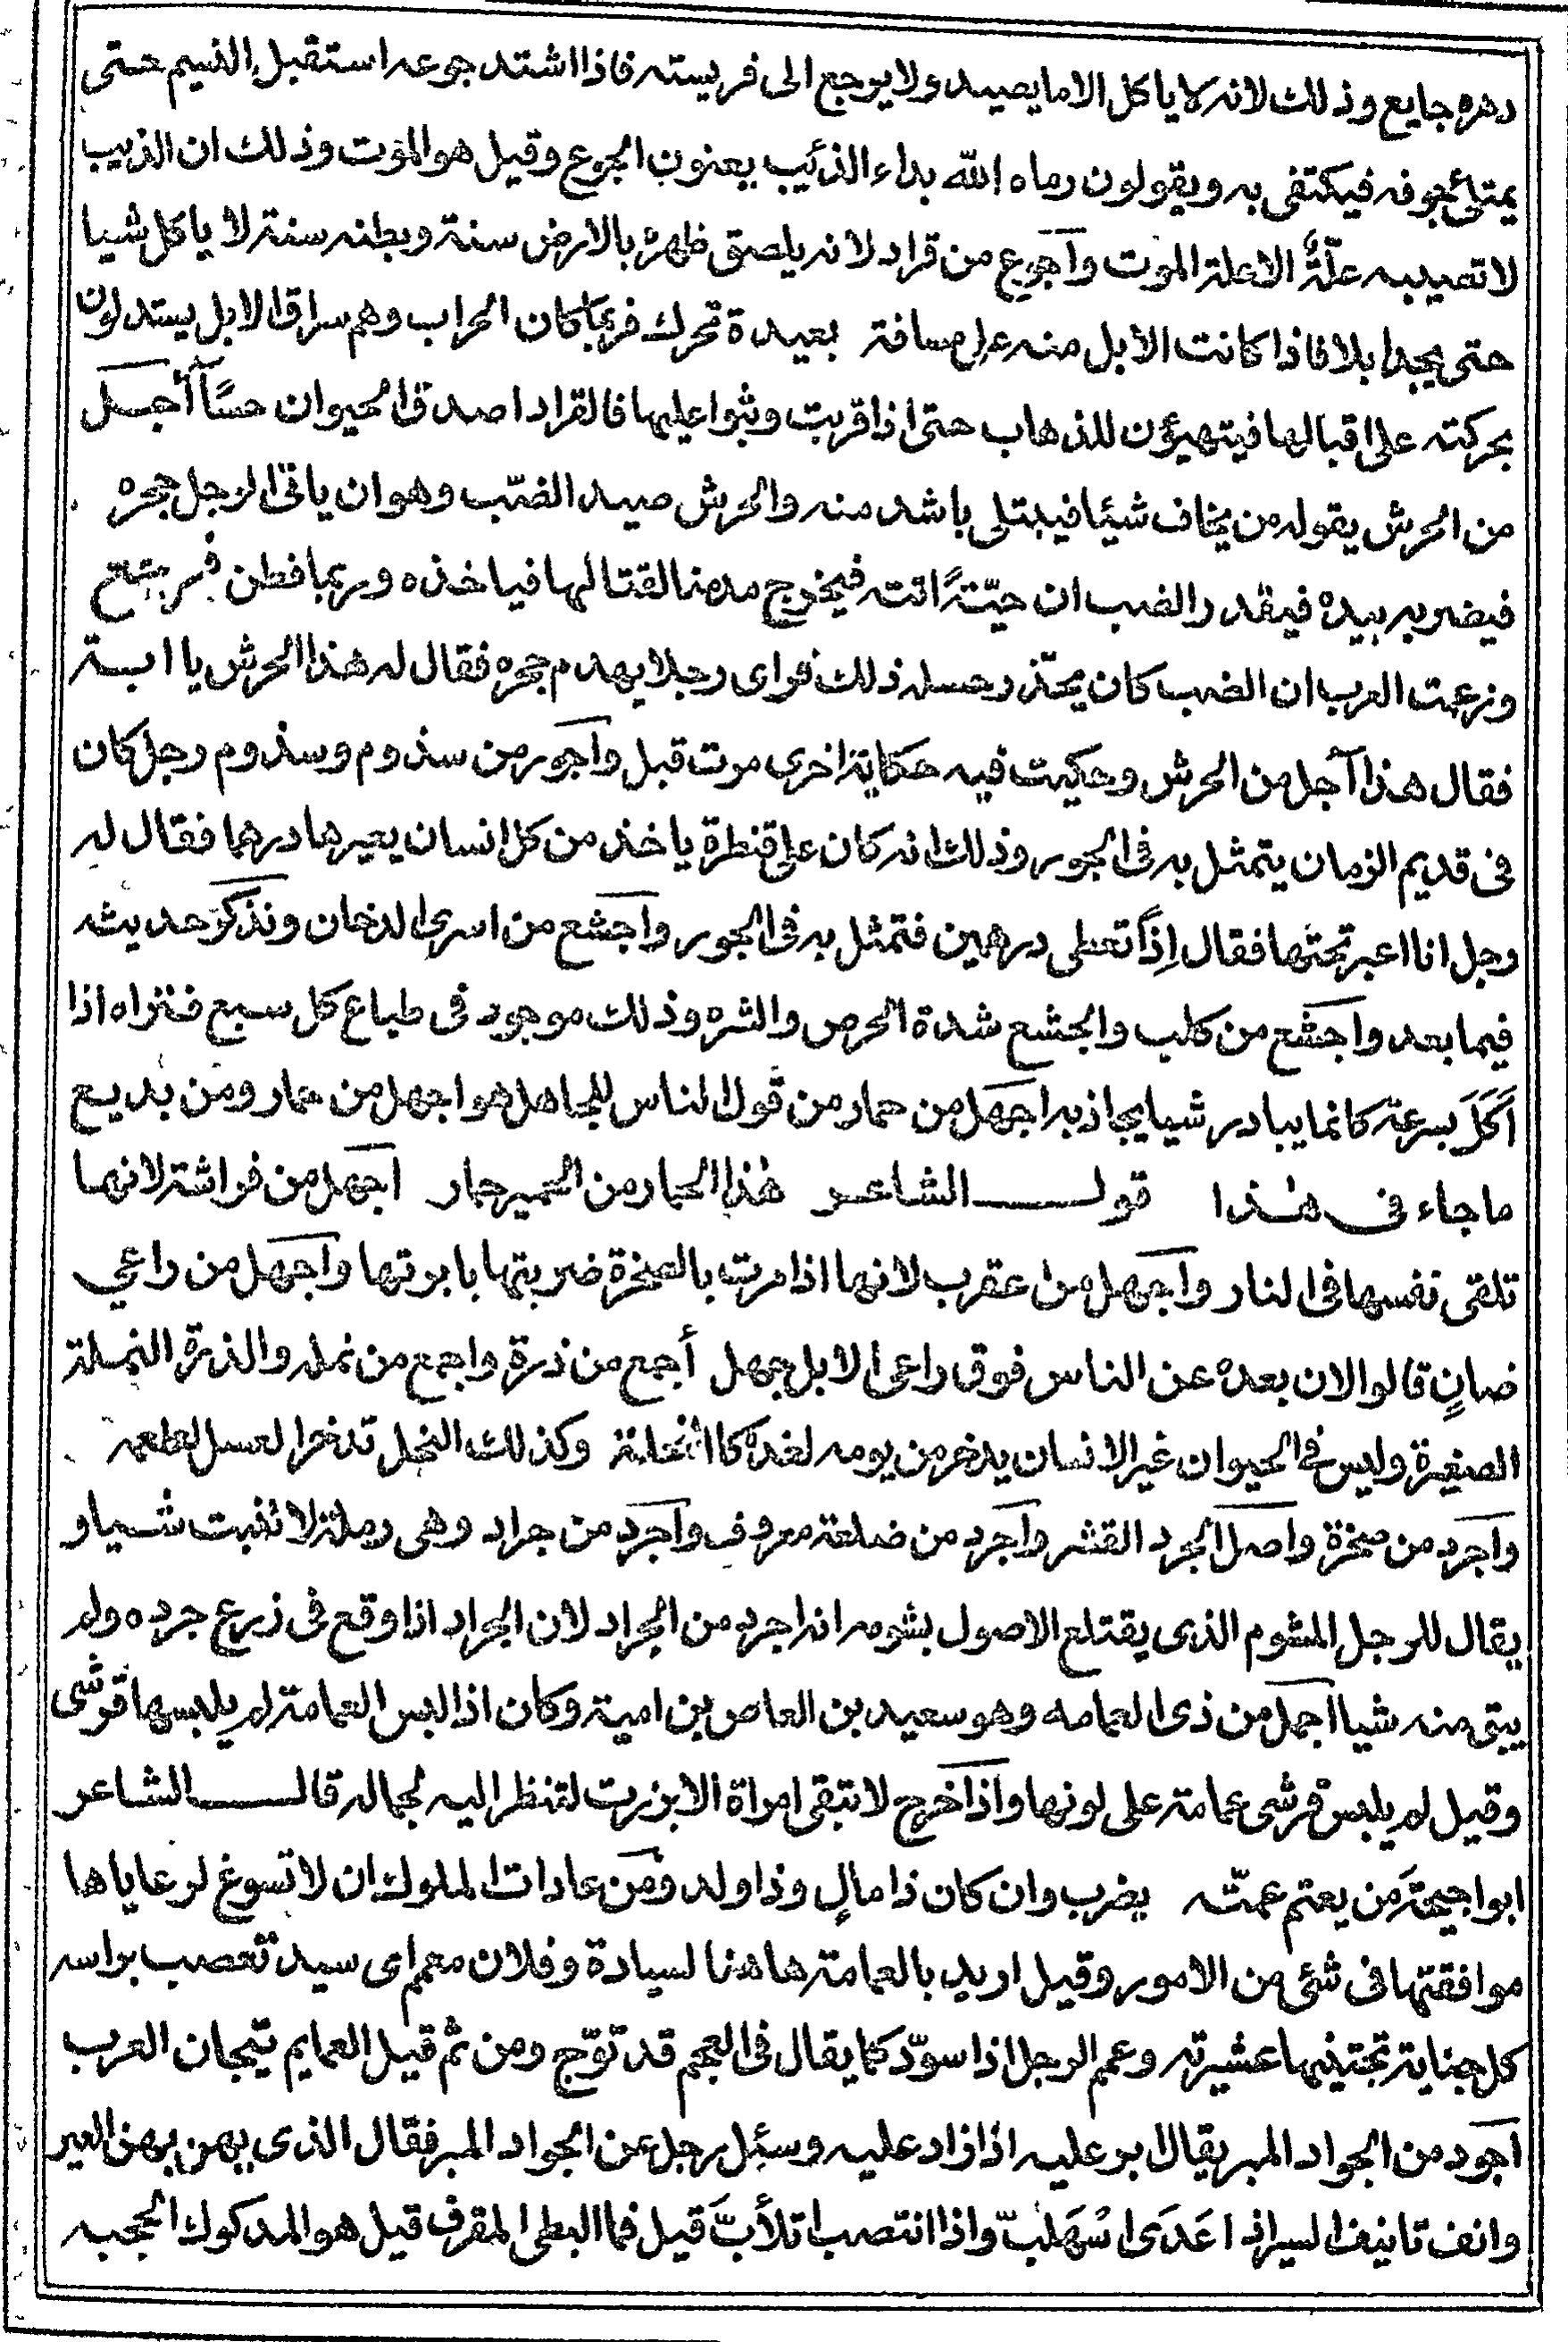 دهره جايع وذلك لانه لا ياكل الا ما يصيد ولا يرجع الى فريسته فاذا اشتد جوعه استقبل النسيم حتى
يمتلئ جوفه فيكتفى به ويقولون رماه الله بداء الذئيب يعنون الجوع وقيل هو الموت وذلك ان الذيب
لا تصيبه علّةٌ الا علة الموت وآجوع من قراد لانه يلصق ظهره بالارض سنة وبطنه سنة لا ياكل شيا
حتى يجد ابلا فاذا كانت الابل منه على مسافة بعيدة تحرك فربما كان الحراب وهم سراق الابل يستدلون
بحركته على اقبالها فيتهيؤن للذهاب حتى اذا قربت وثبوا عليها فالقراد اصدق الحيوان حسًا آجل
من الحرش يقوله من يخاف شيئا فيبتلى باشد منه والحرش صيد الضب وهو ان ياتى الرجل جحره
فيضربه بيده فيقدر الضب ان حيّةً اتته فيخرج مذنبا لقتالها فياخذه وربما فطن فى
وزعمت العرب ان الضب كان يحذر حسله ذلك فراى رجلا يهدم جحره فقال له هذا الحرش يا ابة
فقال هذا آجل من الحرش وحكيت فيه حكاية اخرى مرت قبل وآجور من سذوم وسذوم رجل كان
فى قديم الزمان يتمثل به فى الجور وذلك انه كان على قنطرة ياخذ من كل انسان يعبرها درهما فقال له
رجل انا اعبر تحتها فقال إذًا تعطى درهمين فتمثل به فى الجور وآجشع من اسرى الدخان ونذكر حديثه
فيما بعد وآجشع من كلب والجشع شدة الحرص والشره وذلك موجود فى طباع كل سبع فتراه اذا
أكَلَ بسرعة كانما يبادر شيا يجاذبه اجهل من حمار من قول الناس للجاهل هو اجهل من حمار ومن بديع
ما جاء فى هذا قول الشاعر هذا الحمار من الحمير حمار اجهل من فراشة لانها
تلقى نفسها فى النار وآجهل من عقرب لانها اذا مرت بالصخرة ضربتها بابرتها وآجهل من راعي
ضانٍ قالوا لان بعده عن الناس فوق راعى الابل جهل أجمع من ذرة واجمع من نمله والذرة النملة
الصغيرة وليس فى الحيوان غير الانسان يدخر من يومه لغده كا وكذلك النحل تدخر العسل لطعمه
وآجرد من صخرة واصل الجرد القشر وآجرد من ضلعة معروف وآجرد من جراد وهى رملة لا تنبت شيا و
يقال للرجل المشوم الذى يقتلع الاصول بشومه انه اجرد من الجراد لان الجراد اذا وقع فى زرع جرده ولم
يبق منه شيا اجمل من ذى العمامه وهو سعيد بن العاص بن امية وكان اذا لبس العمامة لم يلبسها قرشى
وقيل لم يلبس قرشى عمامة على لونها واذا خرج لا تبقى امراة الا برزت لتنظر اليه لجماله قال الشاعر
ابو احيحة مَن يعتم عمّته يضرب وان كان ذا مالٍ وذا ولد ومن عادات الملوك ان لا تسوغ لرعاياها
موافقتها فى شئ من الامور وقيل اريد بالعمامة هاهنا لسيادة وفلان معمم اى سيد تعصب براسه
كل جناية تجتنيها عشيرته وعمم الرجل اذا سوّد كما يقال فى العجم قد توّج ومن ثم قيل العمايم تيجان العرب
اجود من الجواد المبر يقال ابر عليه اذا زاد عليه وسئل رجل عن الجواد المبر فقال الذى يهن يهن العير
وانف تانيف السير اذا عَدَى اسْهَلَبّ واذا انتصب اتلأبَّ قيل فما البطى المقرف قيل هو المدكوك الحجبه